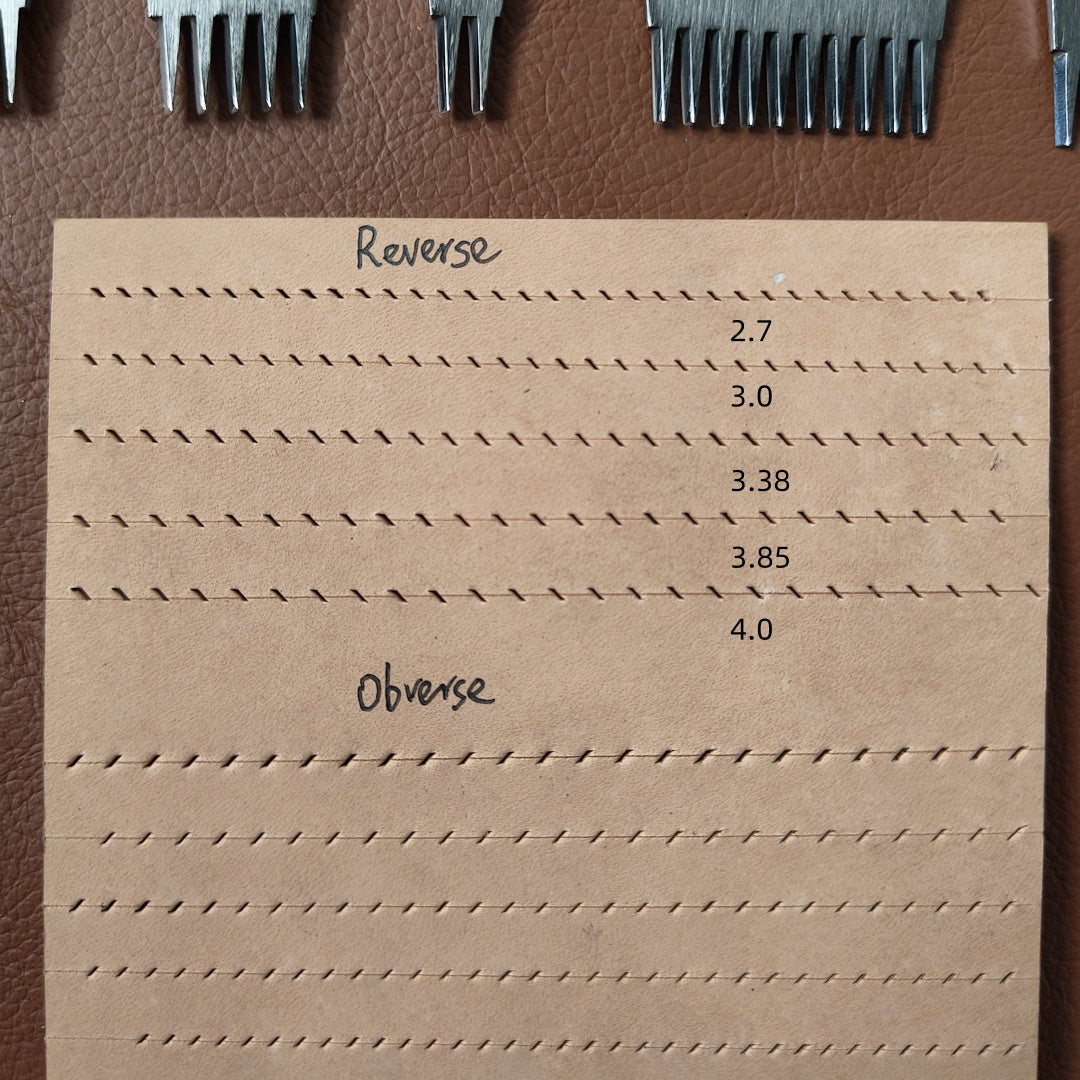 Reverse
2.7
3.0
3.38
3.85
4.0
Obverse